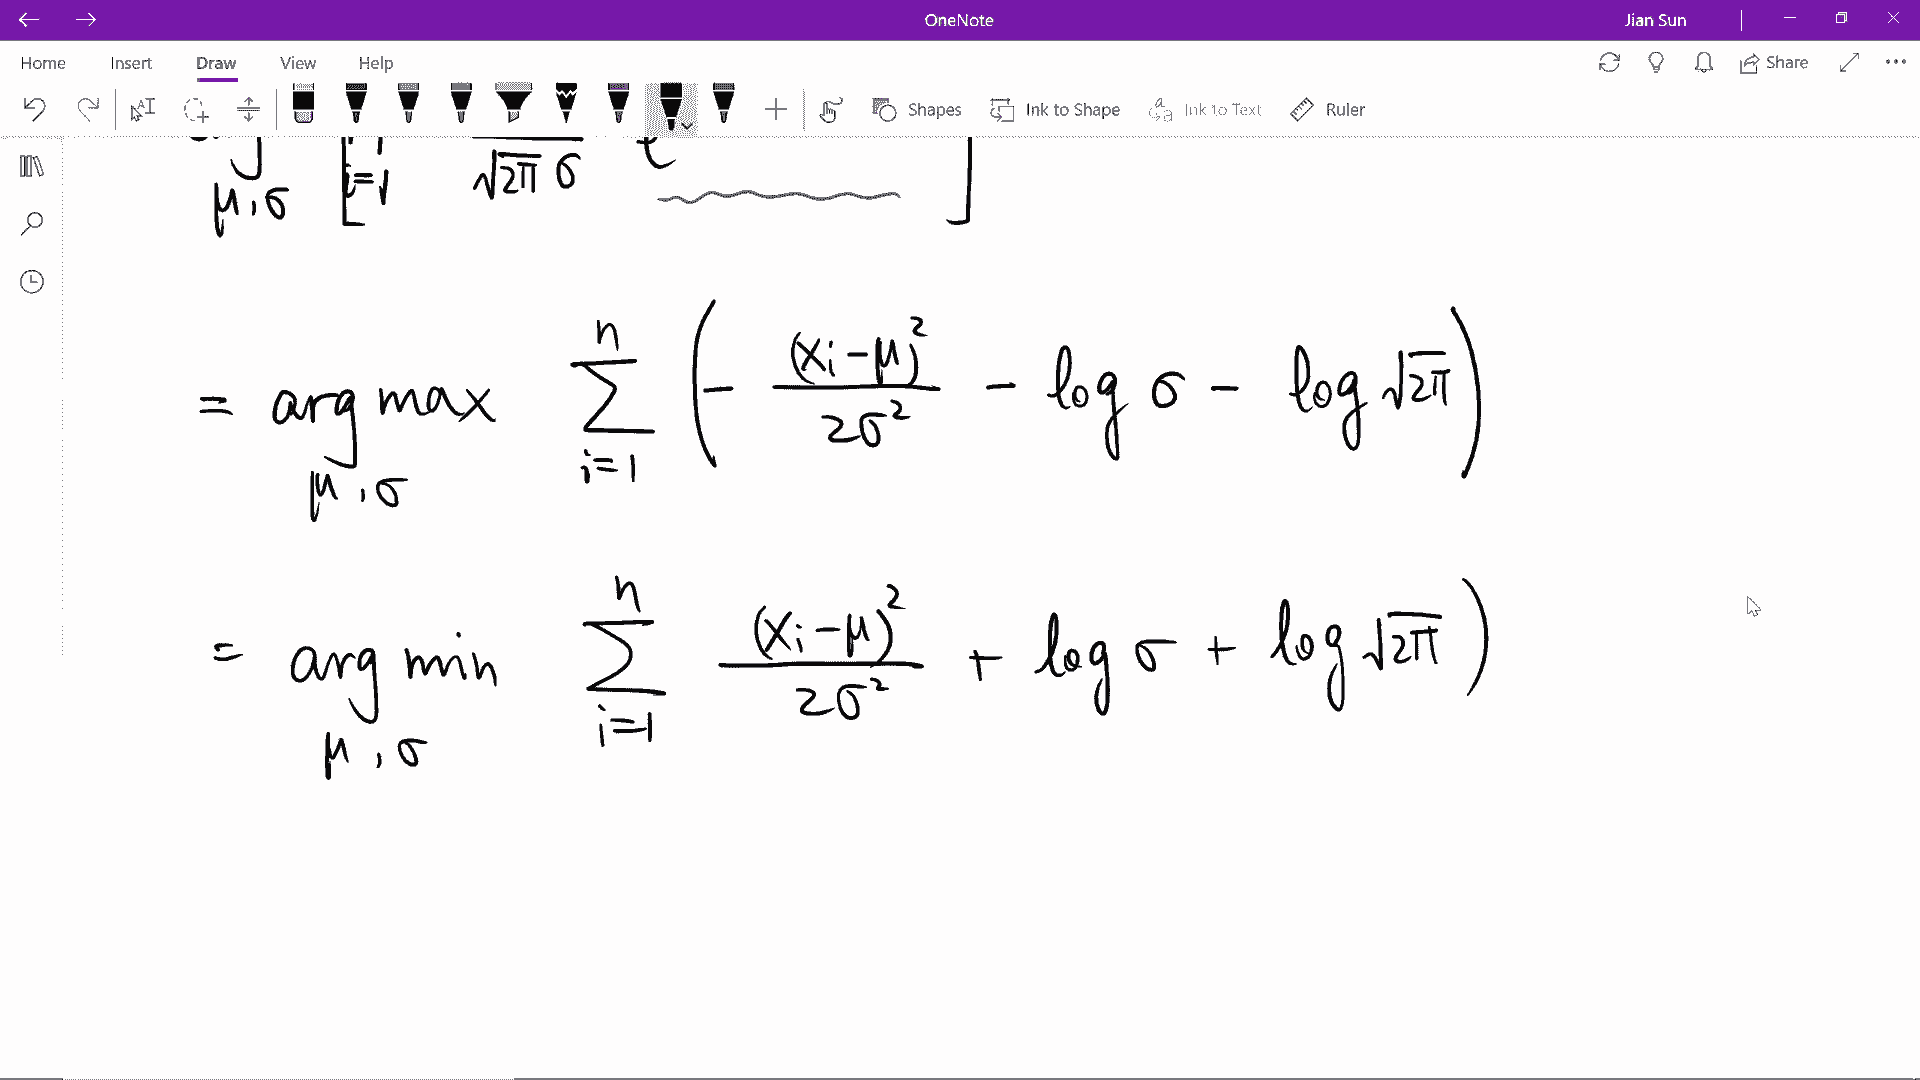 OneNote
Jian Sun
Home Insert Draw View Help
Share
Shapes Ink to Shape Ink to Text Ruler
μ, σ [ i=1 √2π σ e ]
= arg max μ, σ n ∑ i=1 ( - (xi - μ)² / 2σ² - log σ - log √2π )
= arg min μ, σ n ∑ i=1 (xi - μ)² / 2σ² + log σ + log √2π )